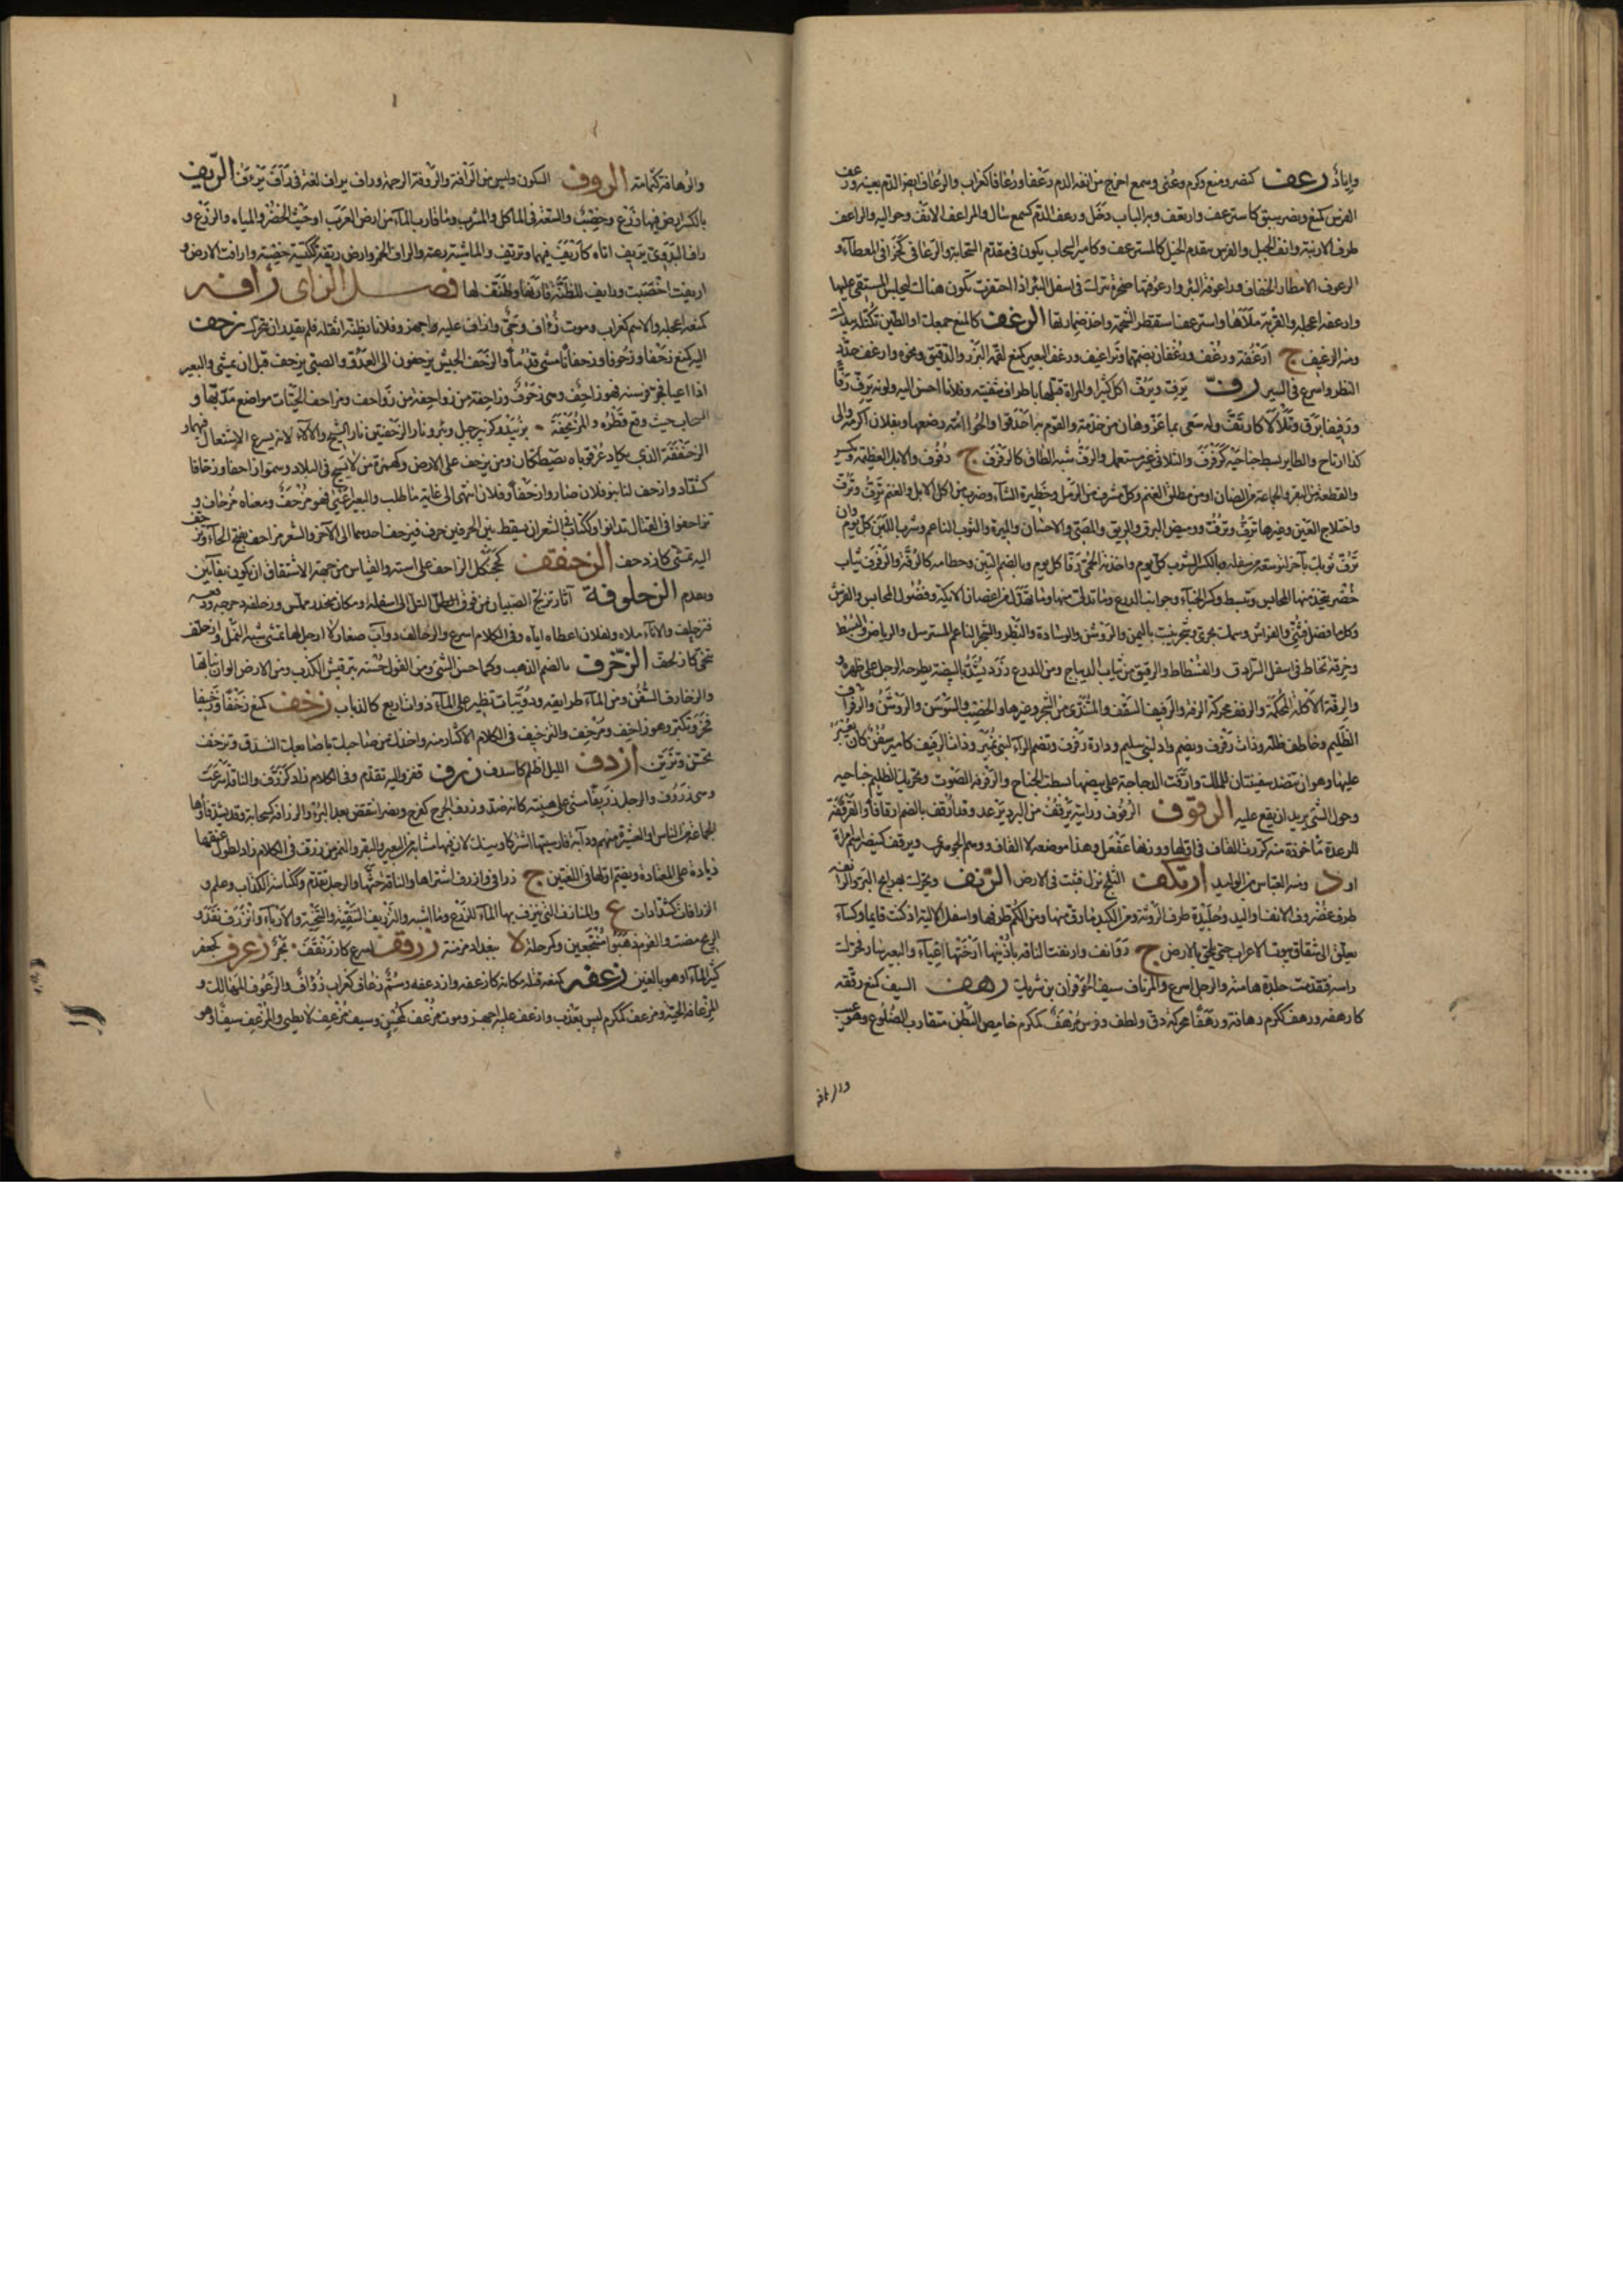 واياذ رعف كنصر ومنع وكرم وعنى وسمع خرج من انفه الدم رعفا ورعافا كغراب والرعاف ايضا الدم بعينه ورعف
الفرس كمنع ونصر سبق كاسترعف وارتعف وبه الباب دخل ورعف الدم كسمع سال والمراعف الانف وحواليه والراعف
طرف الارنبة وانف الجبل والفرس يتقدم الخيل كالمسترعف وكامير السحاب يكون في مقدم السحابة والرعافي كخزافي المعطاء و
الرعوف الامطار الخفاف وراعوفة البئر وارعوفتها صخرة تترك في اسفل البئر اذا احتفرت تكون هناك ليجلس المستقي عليها
وارعفه اعجله والقربة ملأها واسترعف استقطر الشحمة واخذ صهارتها الرغف كالمنع جمعك او الطين تكتله بيدك
ومنه الرغيف ج ارغفة ورغف ورغفان بضمهما وتراغيف ورغف البعير كمنع لقمه البزر والدقيق ونحوه وارغف حدد
النظر واسرع في السير رف يرف ويرف اكل كثيرا والمراة قبلها باطراف شفتيه وفلانا احسن اليه ولونه يرف رفا
ورفيفا برق وتلألأ كارتف وله سعى بما عز وهان من خدمة والقوم به احدقوا والحوار امه رضعها وبفلان اكرمه والى
كذا ارتاح والطاير بسط جناحيه كرفرف والثلاثي غير مستعمل والرف شبه الطاق كالرفرف ج رفوف والابل العظيمة ويكسر
والقطعة من البقر والجماعة من الضان او من مطلق الغنم وكل مشرف من الرمل وحظيرة الشاء وضرب من اكل الابل والغنم ترف وترف
واختلاج العين وغيرها ترف وترف ووميض البرق والريق والمص والاحسان والميرة والثوب الناعم وشرب اللبن كل يوم وان
ترف ثوبك بآخر لتوسعه من سفله وبالكسر الشرب كل يوم واخذته الحمى رفا كل يوم وبالضم التبن وحطامه كالرفة والرفرف ثياب
خضر يتخذ منها المحابس وتبسط وكسر الخباء وجوانب الدرع وما تدلى منها وما تهدل من اغصان الايكة وفضول المحابس والفرش
وكل ما فضل فثني والفراش وسمك بحري وشجر ينبت باليمن والروشن والوسادة والبظر والشجر الناعم المسترسل والرياض والبسط
وخرقة تخاط في اسفل السرادق والفسطاط والرقيق من ثياب الديباج ومن الدرع زرد يشد بالبيضة يطرحه الرجل على ظهره و
والرفة الاكلة المحكمة والرفف محركة الرقة والرفيف السقف والمتندي من الشجر وغيرها والخصب والسوسن والروشن والرفراف
الظليم وخاطف ظله وذات رفرف ويضم واد لبني سليم ودارة رفرف وتضم الراء لبني نمير وذات الرفيف كامير سفن كان يعبر
عليها وهو ان تنضد سفينتان للملك وارفت الدجاجة على بيضها بسطت الجناح والرفرفة الصوت وتحريك الظليم جناحيه
وحول الشئ يريد ان يقع عليه الرقوف الرقوف ورايته يرقف من البرد يرعد وقد ارقف بالضم ارقافا والقرقفة
للرعدة ماخوذة منه كررت القاف في اولها ووزنها عفعل وهذا موضعه لا القاف ووهم الجوهري ويرقف كينصر اسم امراة
او د ومنه العباس بن الوليد ارتكف الثلج نزل فثبت في الارض الرنف ويحرك بهرامج البر والرانفة
طرف غضروف الانف واليد وجليدة طرف الروثة ومن الكبد ما رق منها ومن الكم طرفها واسفل الالية اذا كنت قايما وكساء
يعلق الى شقاق بيوت الاعراب حتى يلحق بالارض ج روانف وارنفت الناقة باذنيها ارختها اعياء والبعير سار فحرك
راسه فتقدمت جلدة هامته والرجل اسرع والمرناف سيف الحوفزان بن شريك رهف السيف كمنع رققه
كارهفه ورهف ككرم رهافة ورهفا محركة دق ولطف وفرس مرهف كمكرم خامص البطن متقارب الضلوع وهو عيب
والرهافة
والرهافة كثمامة الروف السكون وليس من الرافة والروفة الرحمة وراف يراف لغة في رأف يرؤف الريف
بالكسر ارض فيها زرع وخصب والسعة في الماكل والمشرب وما قارب الماء من ارض العرب او حيث الخضر والمياه والزرع و
راف البدوي يريف اتاه كاريف فيهما وتريف والماشية رعته والراف الخمر وارض ريفة ككيسة خصبة وارافت الارض و
اريفت اخصبت ورايف للظنة قارفها وظنف لها فصل الزاي زافه
كمنعه اعجله والاسم كغراب وموت زؤاف وحي وازاف عليه اجهز وفلانا بطنه اثقله فلم يقدر ان يتحرك زحف
اليه كمنع زحفا وزحوفا وزحفانا مشى قدما والزحف الجيش يزحفون الى العدو والصبي يزحف قبل ان يمشي والبعير
اذا اعيا فجر فرسنه فهو زاحف وهي زحوف وزاحفة من زواحف ومزاحف الحيات مواضع مدبها و
السحاب حيث وقع قطره والمزيحفة ة بزبيد وكزبير جبل وبئر ونار الزحفتين نار الشيح والالاء لانه يسرع الاشتعال فيهما و
الزحنقفة الذي يكاد عرقوباه يصطكان ومن يزحف على الارض وكهمزة من لا يسيح في البلاد وسموا زاحفا وزحافا
كشداد وازحف لنا بنو فلان صاروا زحفا وفلان انتهى الى غاية ما طلب والبعير اعيى فهو مزحف ومعتاده مزحاف و
تزاحفوا في القتال تدانوا وككتاب في الشعر ان يسقط بين الحرفين حرف فيزحف احدهما الى الآخر والشعر مزاحف بفتح الحاء وتزحف
اليه تمشى كازدحف الزحنقف كجحنفل الزاحف على استه والقياس من جهة الاشتقاق ان يكون بفاءين
وبعدم الزحلوفة آثار تزلج الصبيان من فوق التل الى اسفله او مكان منحدر مملس وزحلفه دحرجه ودفعه
فتزحلف والاناء ملاه ولفلان اعطاه اياه وفي الكلام اسرع والزحالف دواب صغار لا ارجل لها تمشي شبه النمل وازحلف
تنحى كازلحف الزخرف بالضم الذهب وكمال حسن الشئ ومن القول حسنه بترقيش الكذب ومن الارض الوان نباتها
والزخارف السفن ومن الماء طرايقه ودويبات تطير على الماء ذوات اربع كالذباب زخف كمنع زخفا وزخيفا
فخر وتكبر وهو زاخف ومزخف والتزخيف في الكلام الاكثار منه واخذك من صاحبك باصابعك الشندق وتزخف
تحسن وتزين ازدف الليل اظلم كاسدف زرف قفز واليه تقدم وفي الكلام زاد كزرف والناقة اسرعت
وهي زروف والرجل زريفا مشى على هينته كانه ضد وزرف الجرح كفرح ونصر انتقض بعد البرء والزرافة كسحابة وقد تشدد فاؤها
الجماعة من الناس او العشرة منهم ودابة فارسيتها اشتر كاو پلنك لان فيها مشابه من البعير والبقر والنمر من زرف في الكلام زاد لطول عنقها
زيادة على المعتاد ويضم اولها في اللغتين ج زرافى وازرف اشتراها والناقة حثها والرجل تقدم وككناسة الكذاب وعلم و
الزرافات كشدادات ع والمنازف التي ينزف بها الماء للزرع وما اشبه والتزريف التنقية والتنحية والارباء وانزرف نفذ و
الريح مضت والقوم ذهبوا منتجعين وكمرحلة ة ببغداد مزرفة زرقف اسرع كازرنقف بحر زعرف كجعفر
كثير الماء او هو بالغين زعفه كمنعه قتله مكانه كازعفه وازدعفه وسم زعاف كغراب زؤاف والزعوف المهالك و
المزعافة الحية ومزعف كمكرم ليس بعذب وازعف عليه اجهز وموت مزعف كمحسن وسيف مزعف لا يطني والمزعف سيف او هو